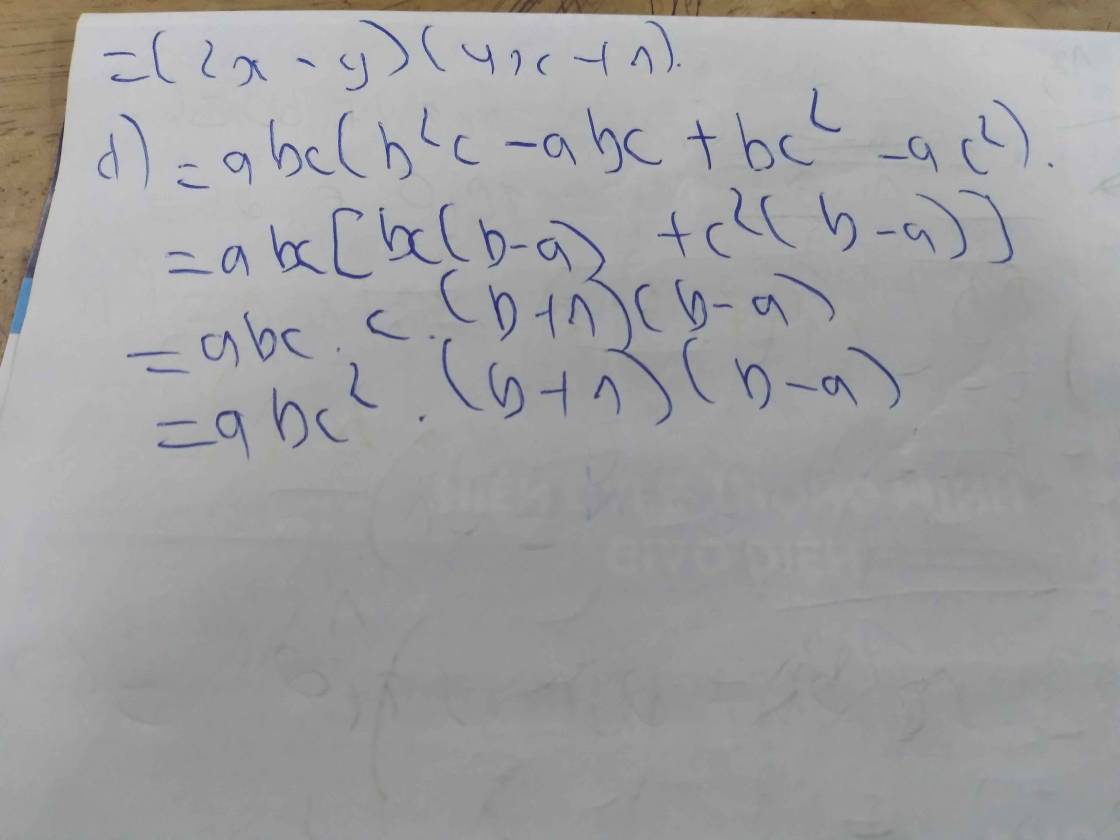 =(2x - y)(4x+1).
d) = abc(b²c - abc + bc² - ac²).
= abc[bc(b-a) + c²(b-a)]
= abc . c . (b+1)(b-a)
= abc² . (b+1)(b-a)